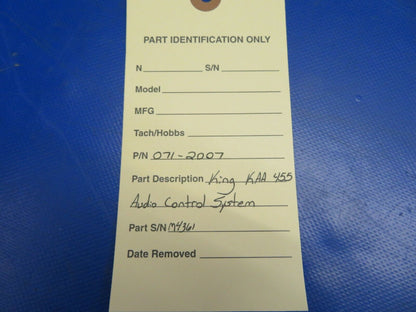 PART IDENTIFICATION ONLY
N__________ S/N__________
Model____________________
MFG____________________
Tach/Hobbs____________________
P/N 071-2007
Part Description King KAA 455
Audio Control System
Part S/N M4361
Date Removed____________________